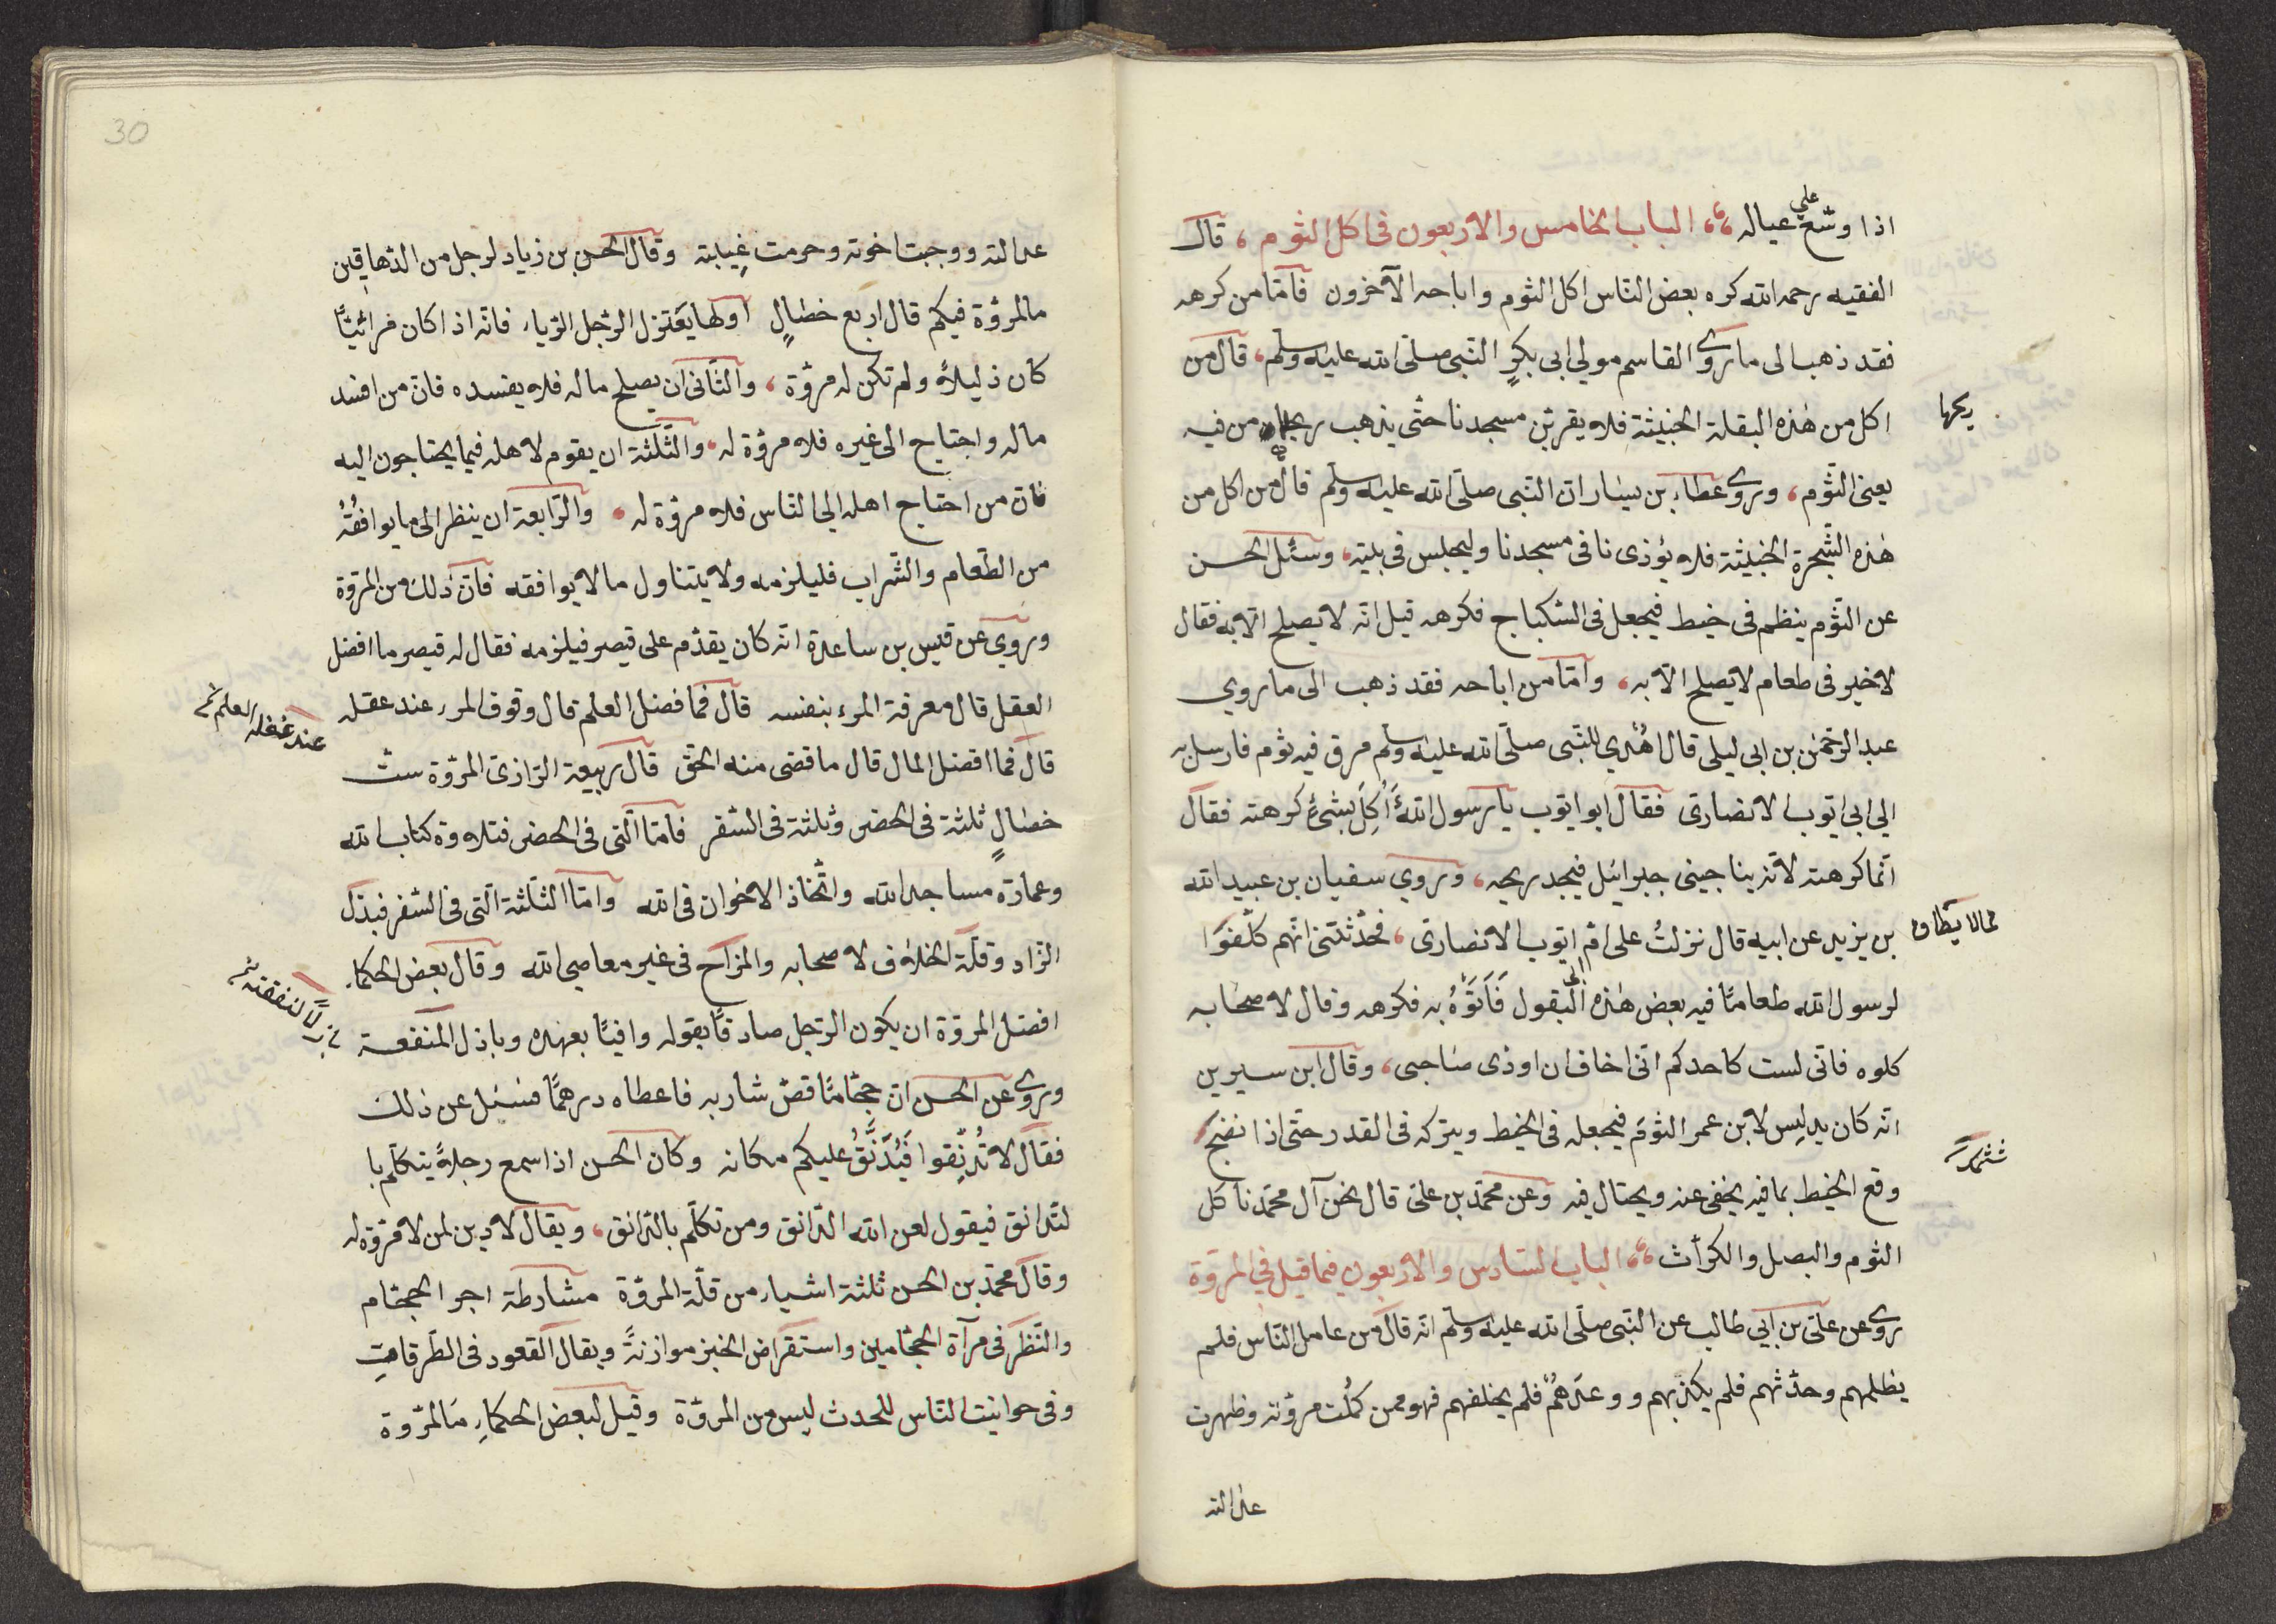 اذا وسّع على عياله الباب الخامس والاربعون فى اكل الثوم، قال
الفقيه رحمه الله كره بعض النّاس اكل الثوم واباحه الآخرون فامّا من كرهه
فقد ذهب الى ما روى القاسم مولي ابى بكرٍ النّبى صلّى الله عليه وسلّم، قال من
اكل من هٰذه البقلة الخبيثة فلا يقربنّ مسجدنا حتّى يذهب ريحها من فيه
ريحها
يعنى الثّوم، وروى عطاء بن يسار انّ النّبى صلّى الله عليه وسلّم قال من اكل من
هٰذه الشّجرة الخبيثة فلا يؤذى نا فى مسجدنا وليجلس فى بيته، وسئل الحسن
عن الثّوم ينظم فى خيط فيجعل فى السّكباج فكرهه قيل انّه لا يصلح الّا به فقال
لا خير فى طعام لا يصلح الّا به، وامّا من اباحه فقد ذهب الى ما روي
عبد الرّحمٰن بن ابى ليلى قال اهُدي للنّبى صلّى الله عليه وسلّم مرق فيه ثوم فارسل به
الي ابى ايّوب الانصارى فقال ابو ايّوب يا رسول الله أ أكِلُ بشئٍ كرهته فقال
انّما كرهته لانّه يناجينى جبرائيل فيجد ريحه، وروي سفيان بن عبيد الله
بن يزيد عن ابيه قال نزلتُ على امّ ايّوب الانصارى، فحدّثتنى انّهم كلّفوا
لرسول الله طعامًا فيه بعض هٰذه البقول فَاَتَوْهُ به فكرهه وقال لاصحابه
كلوه فانّى لست كاحدكم انّى اخاف ان اوذى صاحبى، وقال ابن سيرين
انّه كان يدلِس لابن عمر الثوم فيجعله فى الخيط ويتركه فى القدر حتّى اذا نضج
وقع الخيط بما فيه يخفى عنه ويحتال فيه وعن محمّد بن علىّ قال نحن آل محمّد ناكل
الثوم والبصل والكرّاث الباب السّادس والاربعون فيما قيل في المروّة
روى عن علىّ بن ابي طالب عن النّبى صلّى الله عليه وسلّم انّه قال من عامل النّاس فلم
يظلمهم وحدّثهم فلم يكذبهم ووعدهُمْ فلم يخلفهم فهو ممن كملت مروّته وظهرت
عدالته
30
عدالته ووجبت اخوته وحرمت غيبته وقال الحسن بن زياد لرجل من الدّهاقين
ما المروّة فيكم قال اربع خصالٍ اولها يعتزل الرّجل الرّياء فانّه اذا كان مرائيًّا
كان ذليلاً ولم تكن له مروّة، والثّانى ان يصلح ماله فلا يفسده فانّ من افسد
ماله واحتاج الى غيره فلا مروّة له، والثّلثة ان يقوم لاهله فيما يحتاجون اليه
فانّ من احتاج اهله الى النّاس فلا مروّة له، والرّابعة ان ينظر الى ما يوافقُهُ
من الطّعام والشّراب فليلزمه ولا يتناول ما لا يوافقه فانّ ذٰلك من المروّة
وروي عن قيس بن ساعدة انّه كان يقدّم على قيصر فيلزمه فقال له قيصر ما افضل
العقل قال معرفة المرء بنفسه قال فما افضل العلم قال وقوف المرء عند عقله
قال فما افضل المال قال ما قضى منه الحقّ قال ربيعة الرّازى المروّة ستّ
خصالٍ ثلثة فى الحضر وثلثة فى السّفر فامّا الّتى فى الحضر فتلاوة كتاب الله
وعمارة مساجد الله واتّخاذ الاخوان فى الله وامّا الثّلثة الّتى فى السّفر فبذل
الزّاد وقلّة الخلاف لاصحابه والمزاح فى غير معاصى الله وقال بعض الحكماء
افضل المروّة ان يكون الرّجل صادقًا بقوله وافيًا بعهده وباذل المنفعة
وروى عن الحسن انّ حجّامًا قصّ شاربه فاعطاه درهمًا فسئل عن ذلك
فقال لا تُدنِّقوا فَيُدَنَّقُ عليكم مكانه وكان الحسن اذا سمع رجلاً يتكلّم با
لدّانق فيقول لعن الله الدّانق ومن تكلّم بالدّانق، ويقال لا دين لمن لا مروّة له
وقال محمّد بن الحسن ثلثة اشياء من قلّة المروّة مشارطة اجر الحجّام
والنّظر فى مرآة الحجّامين واستقراض الخبز موازنةً ويقال القعود فى الطّرقاتِ
وفى حوانيت النّاس للحدث ليس من المروّة وقيل لبعض الحكماءِ مَا المروّة